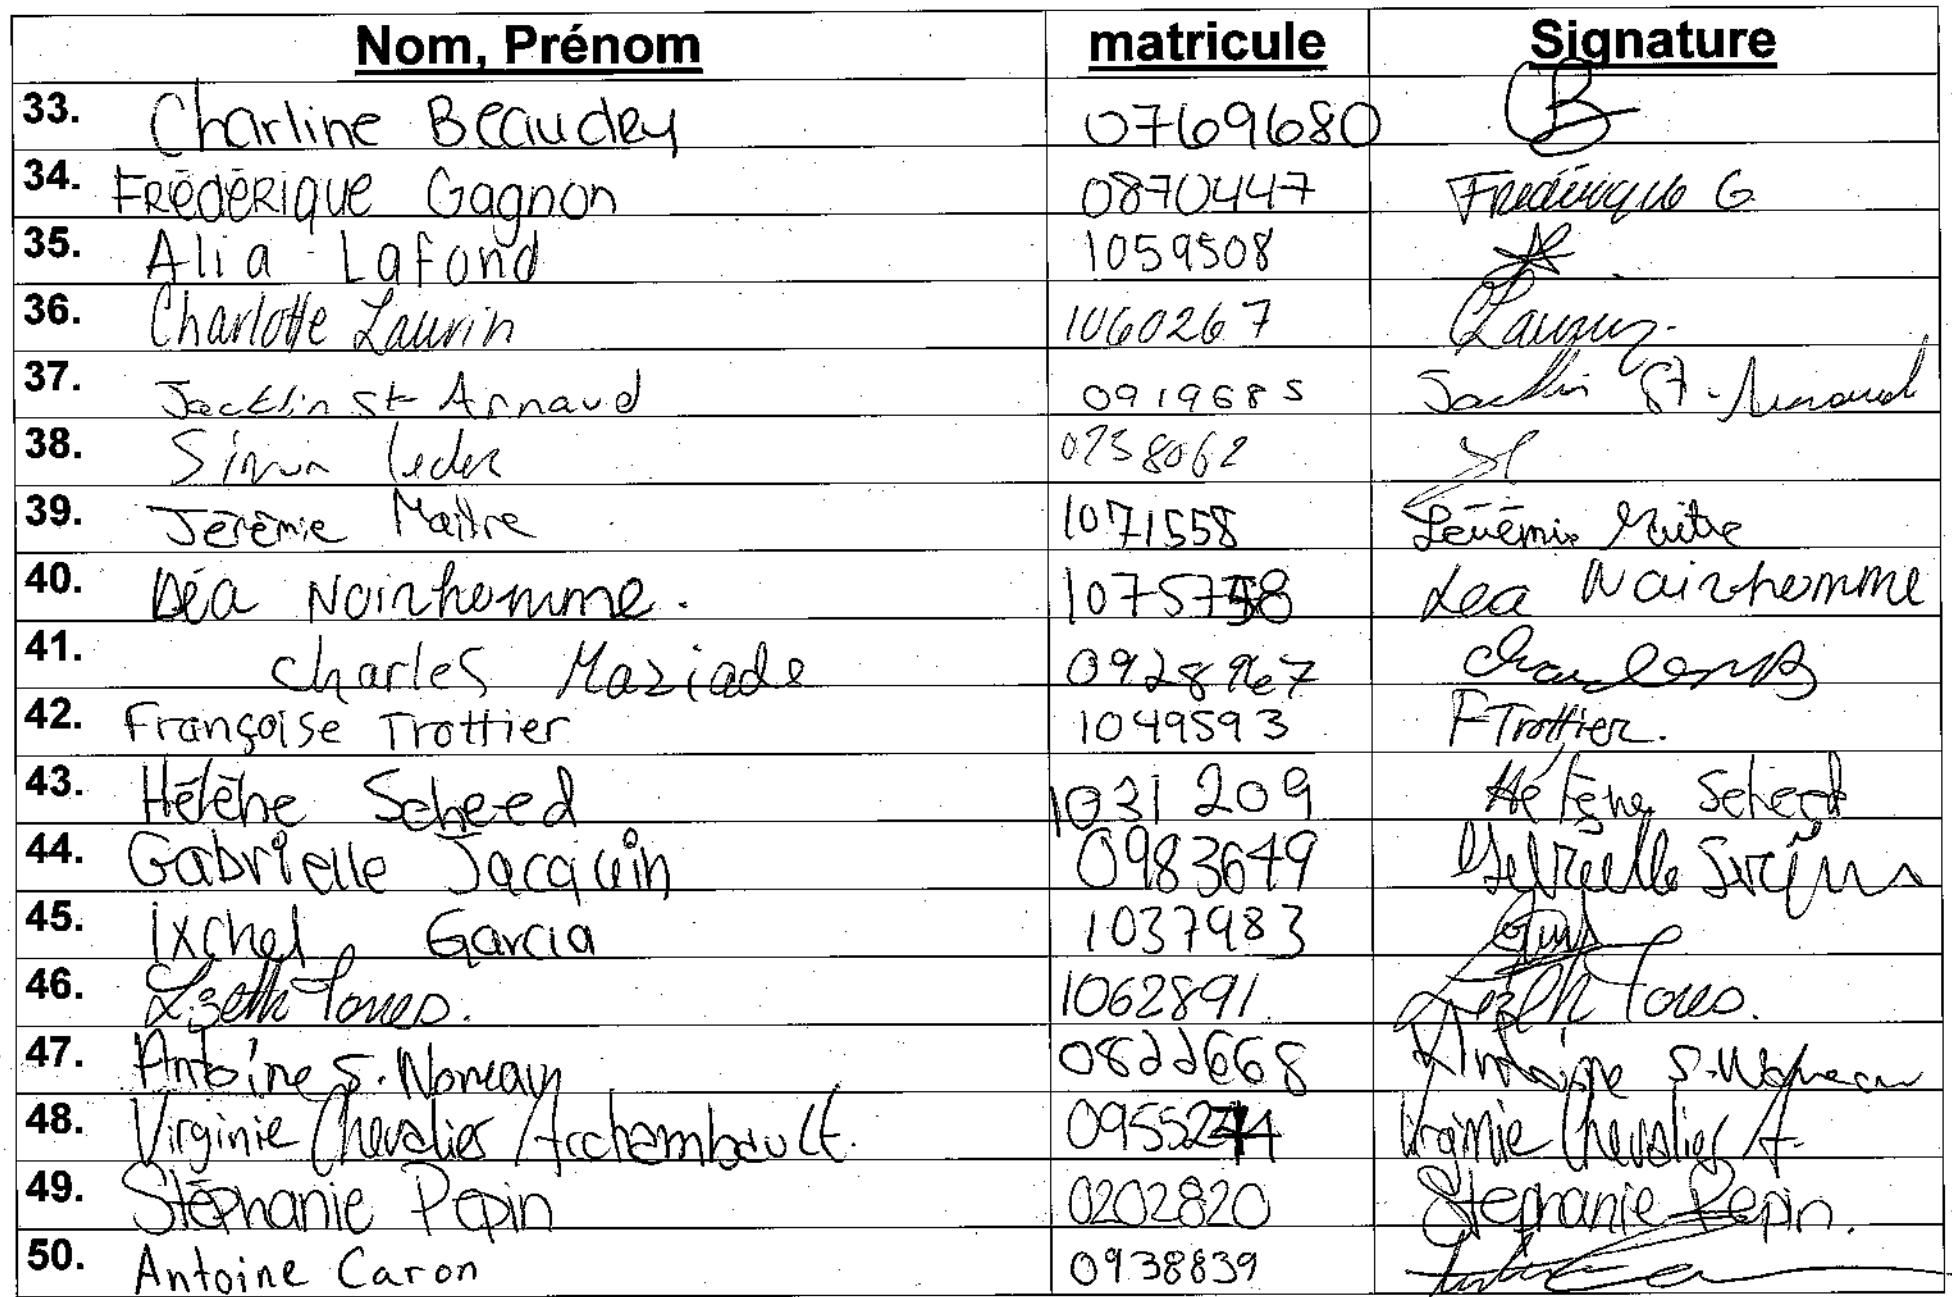 Nom, Prénom matricule Signature
33. Charline Beaudry 0769680 CB
34. Frédérique Gagnon 0870447 Frédérique G
35. Alia Lafond 1059508
36. Charlotte Laurin 1060267
37. Jacklin St Arnaud 0919685 Jacklin St-Arnaud
38. Simon 0738062
39. Jérémie Maître 1071558 Jérémie Maître
40. Léa Noirhomme. 10757 Lea Noirhomme
41. Charles Maziade 0928967
42. Françoise Trottier 1049593 F Trottier.
43. Hélène Scheed 1031209 Hélène Scheed
44. Gabrielle Jacquin 0983649 Gabrielle
45. Ixchel Garcia 1037983
46. Lizeth Torres. 1062891. Lizeth Torres.
47. Antoine S. Noreau 0822668 Antoine S. Noreau
48. Virginie Chevalier Archambault. Virginie Chevalier A.
49. Stéphanie Pepin 0202820 Stéphanie Pepin.
50. Antoine Caron 0938839